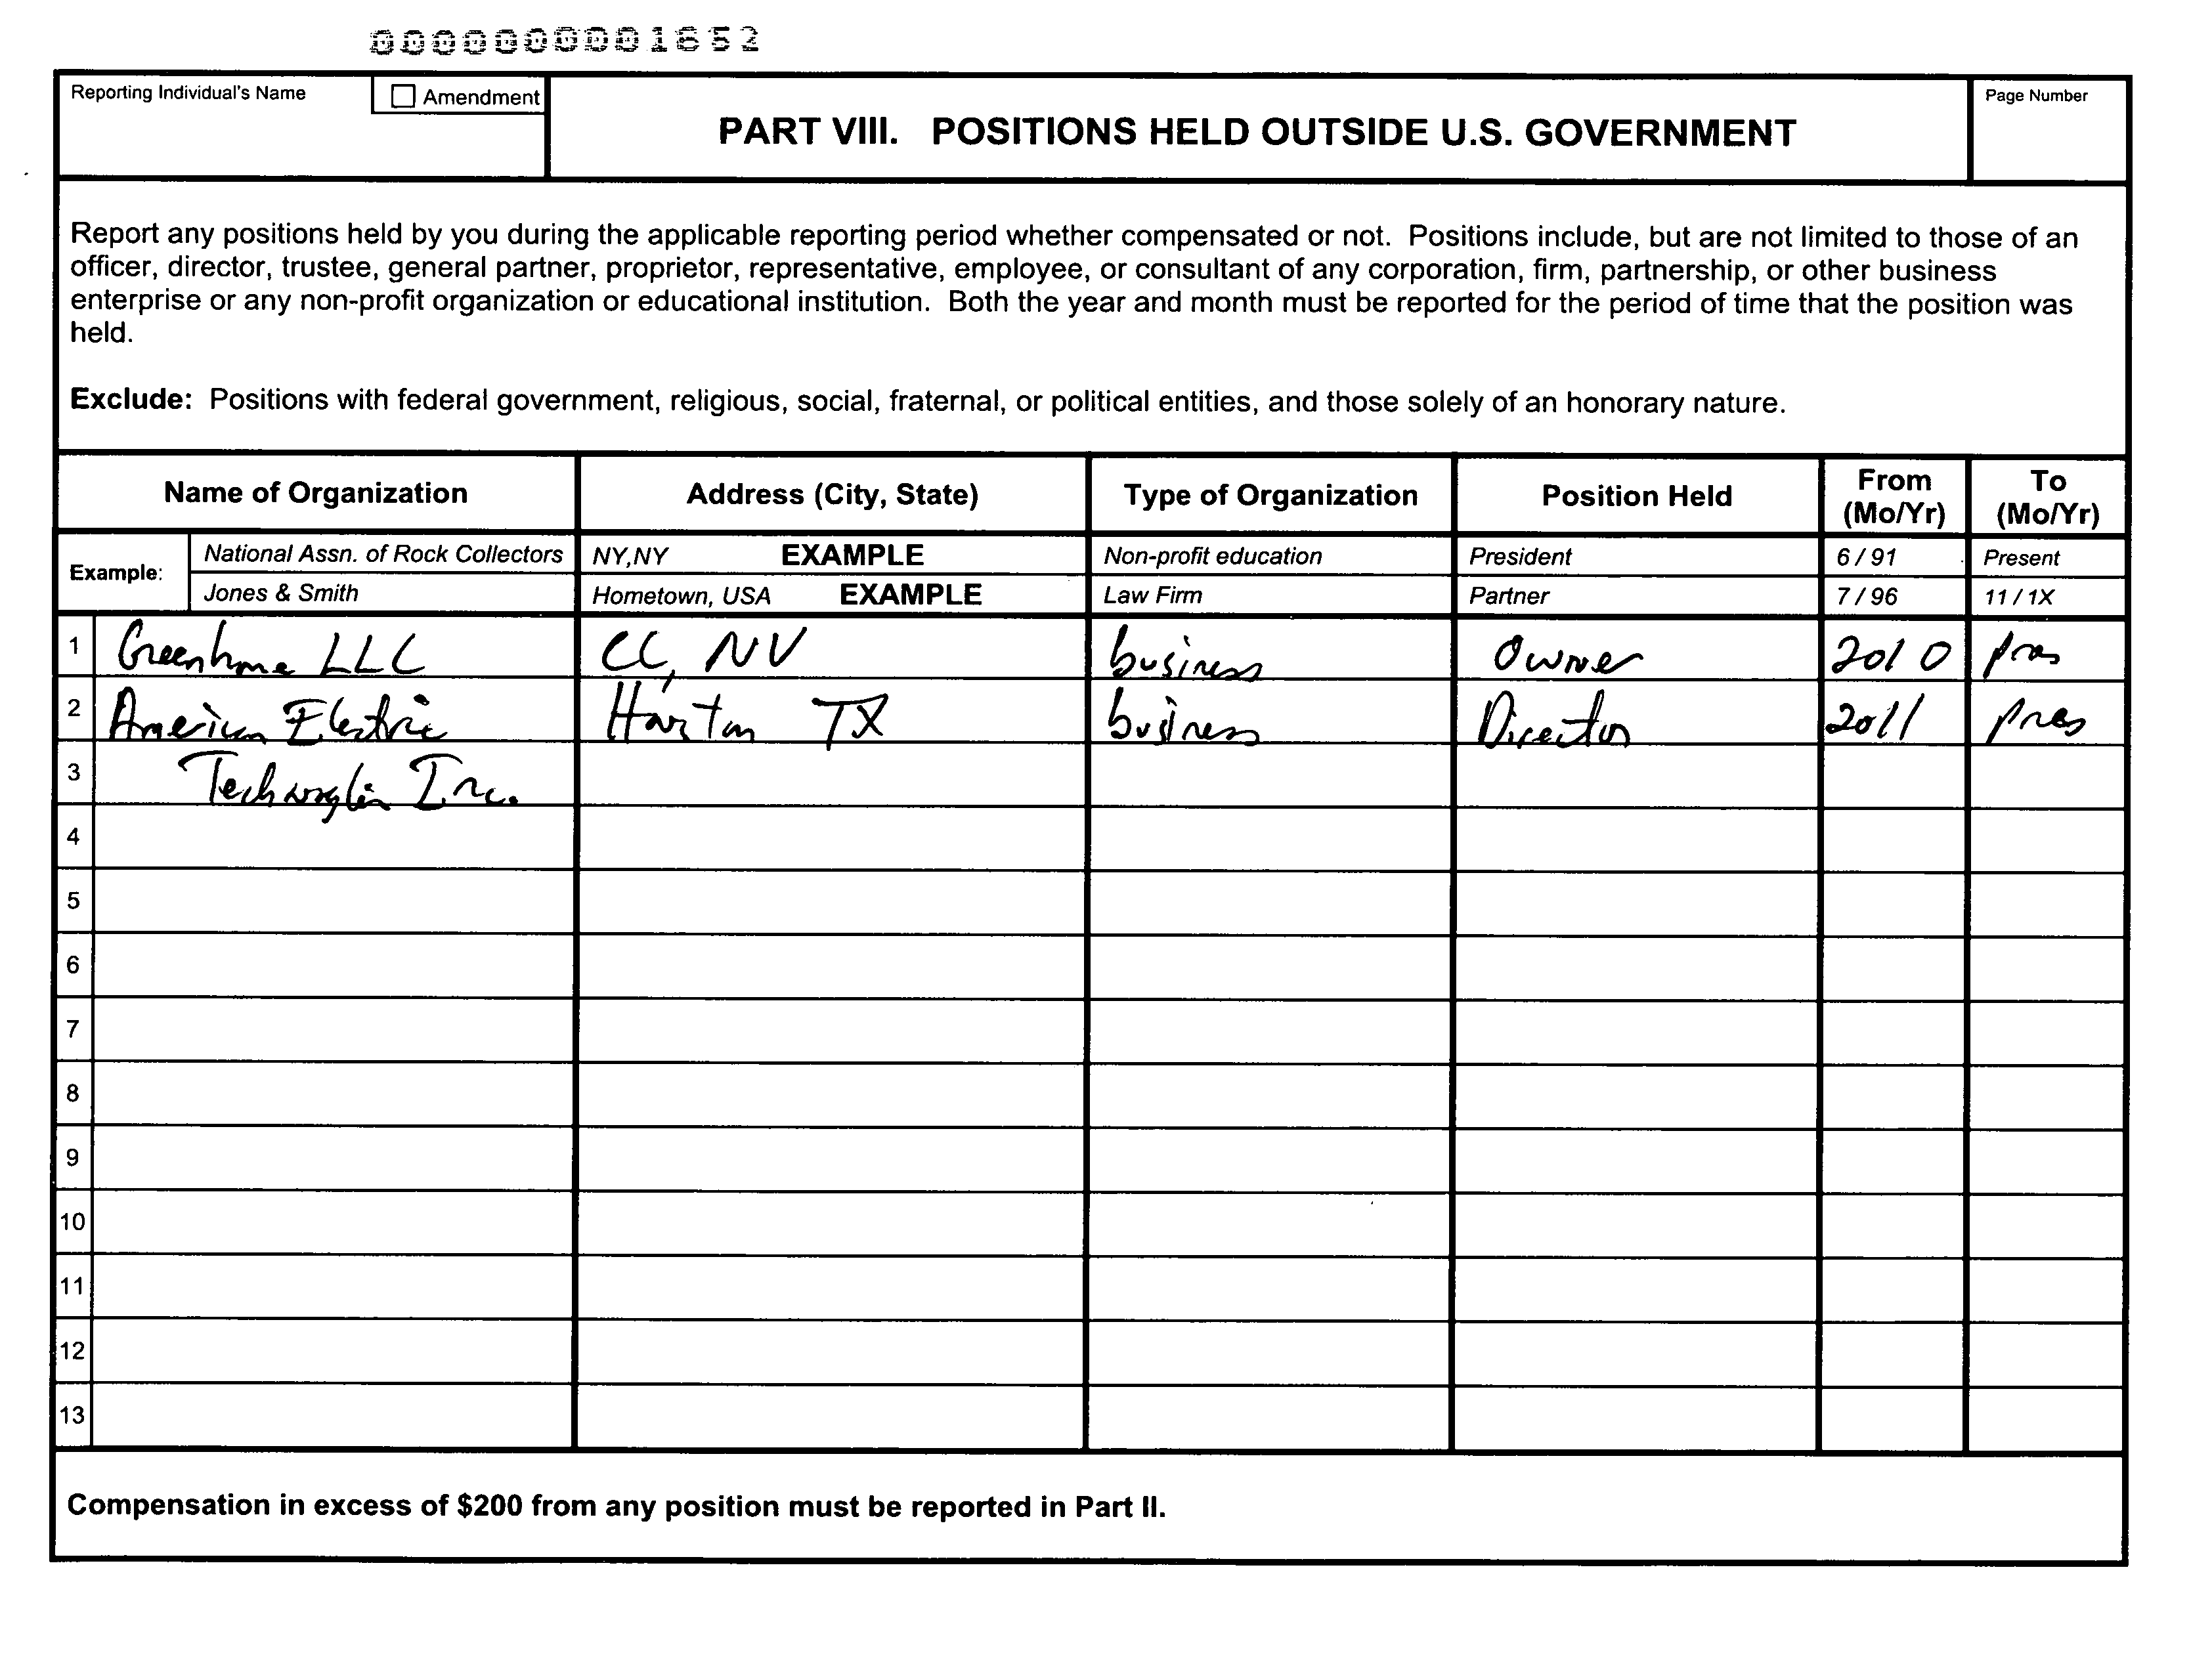 0000000001652
Reporting Individual's Name
Amendment
PART VIII. POSITIONS HELD OUTSIDE U.S. GOVERNMENT
Page Number
Report any positions held by you during the applicable reporting period whether compensated or not. Positions include, but are not limited to those of an
officer, director, trustee, general partner, proprietor, representative, employee, or consultant of any corporation, firm, partnership, or other business
enterprise or any non-profit organization or educational institution. Both the year and month must be reported for the period of time that the position was
held.
Exclude: Positions with federal government, religious, social, fraternal, or political entities, and those solely of an honorary nature.
Name of Organization Address (City, State) Type of Organization Position Held From (Mo/Yr) To (Mo/Yr)
Example: National Assn. of Rock Collectors NY,NY EXAMPLE Non-profit education President 6 / 91 Present
Jones & Smith Hometown, USA EXAMPLE Law Firm Partner 7 / 96 11 / 1X
1 LLC CC, NV business Owner 2010 pres
2 American Electric TX business Director 2011 pres
3 Inc.
4
5
6
7
8
9
10
11
12
13
Compensation in excess of $200 from any position must be reported in Part II.